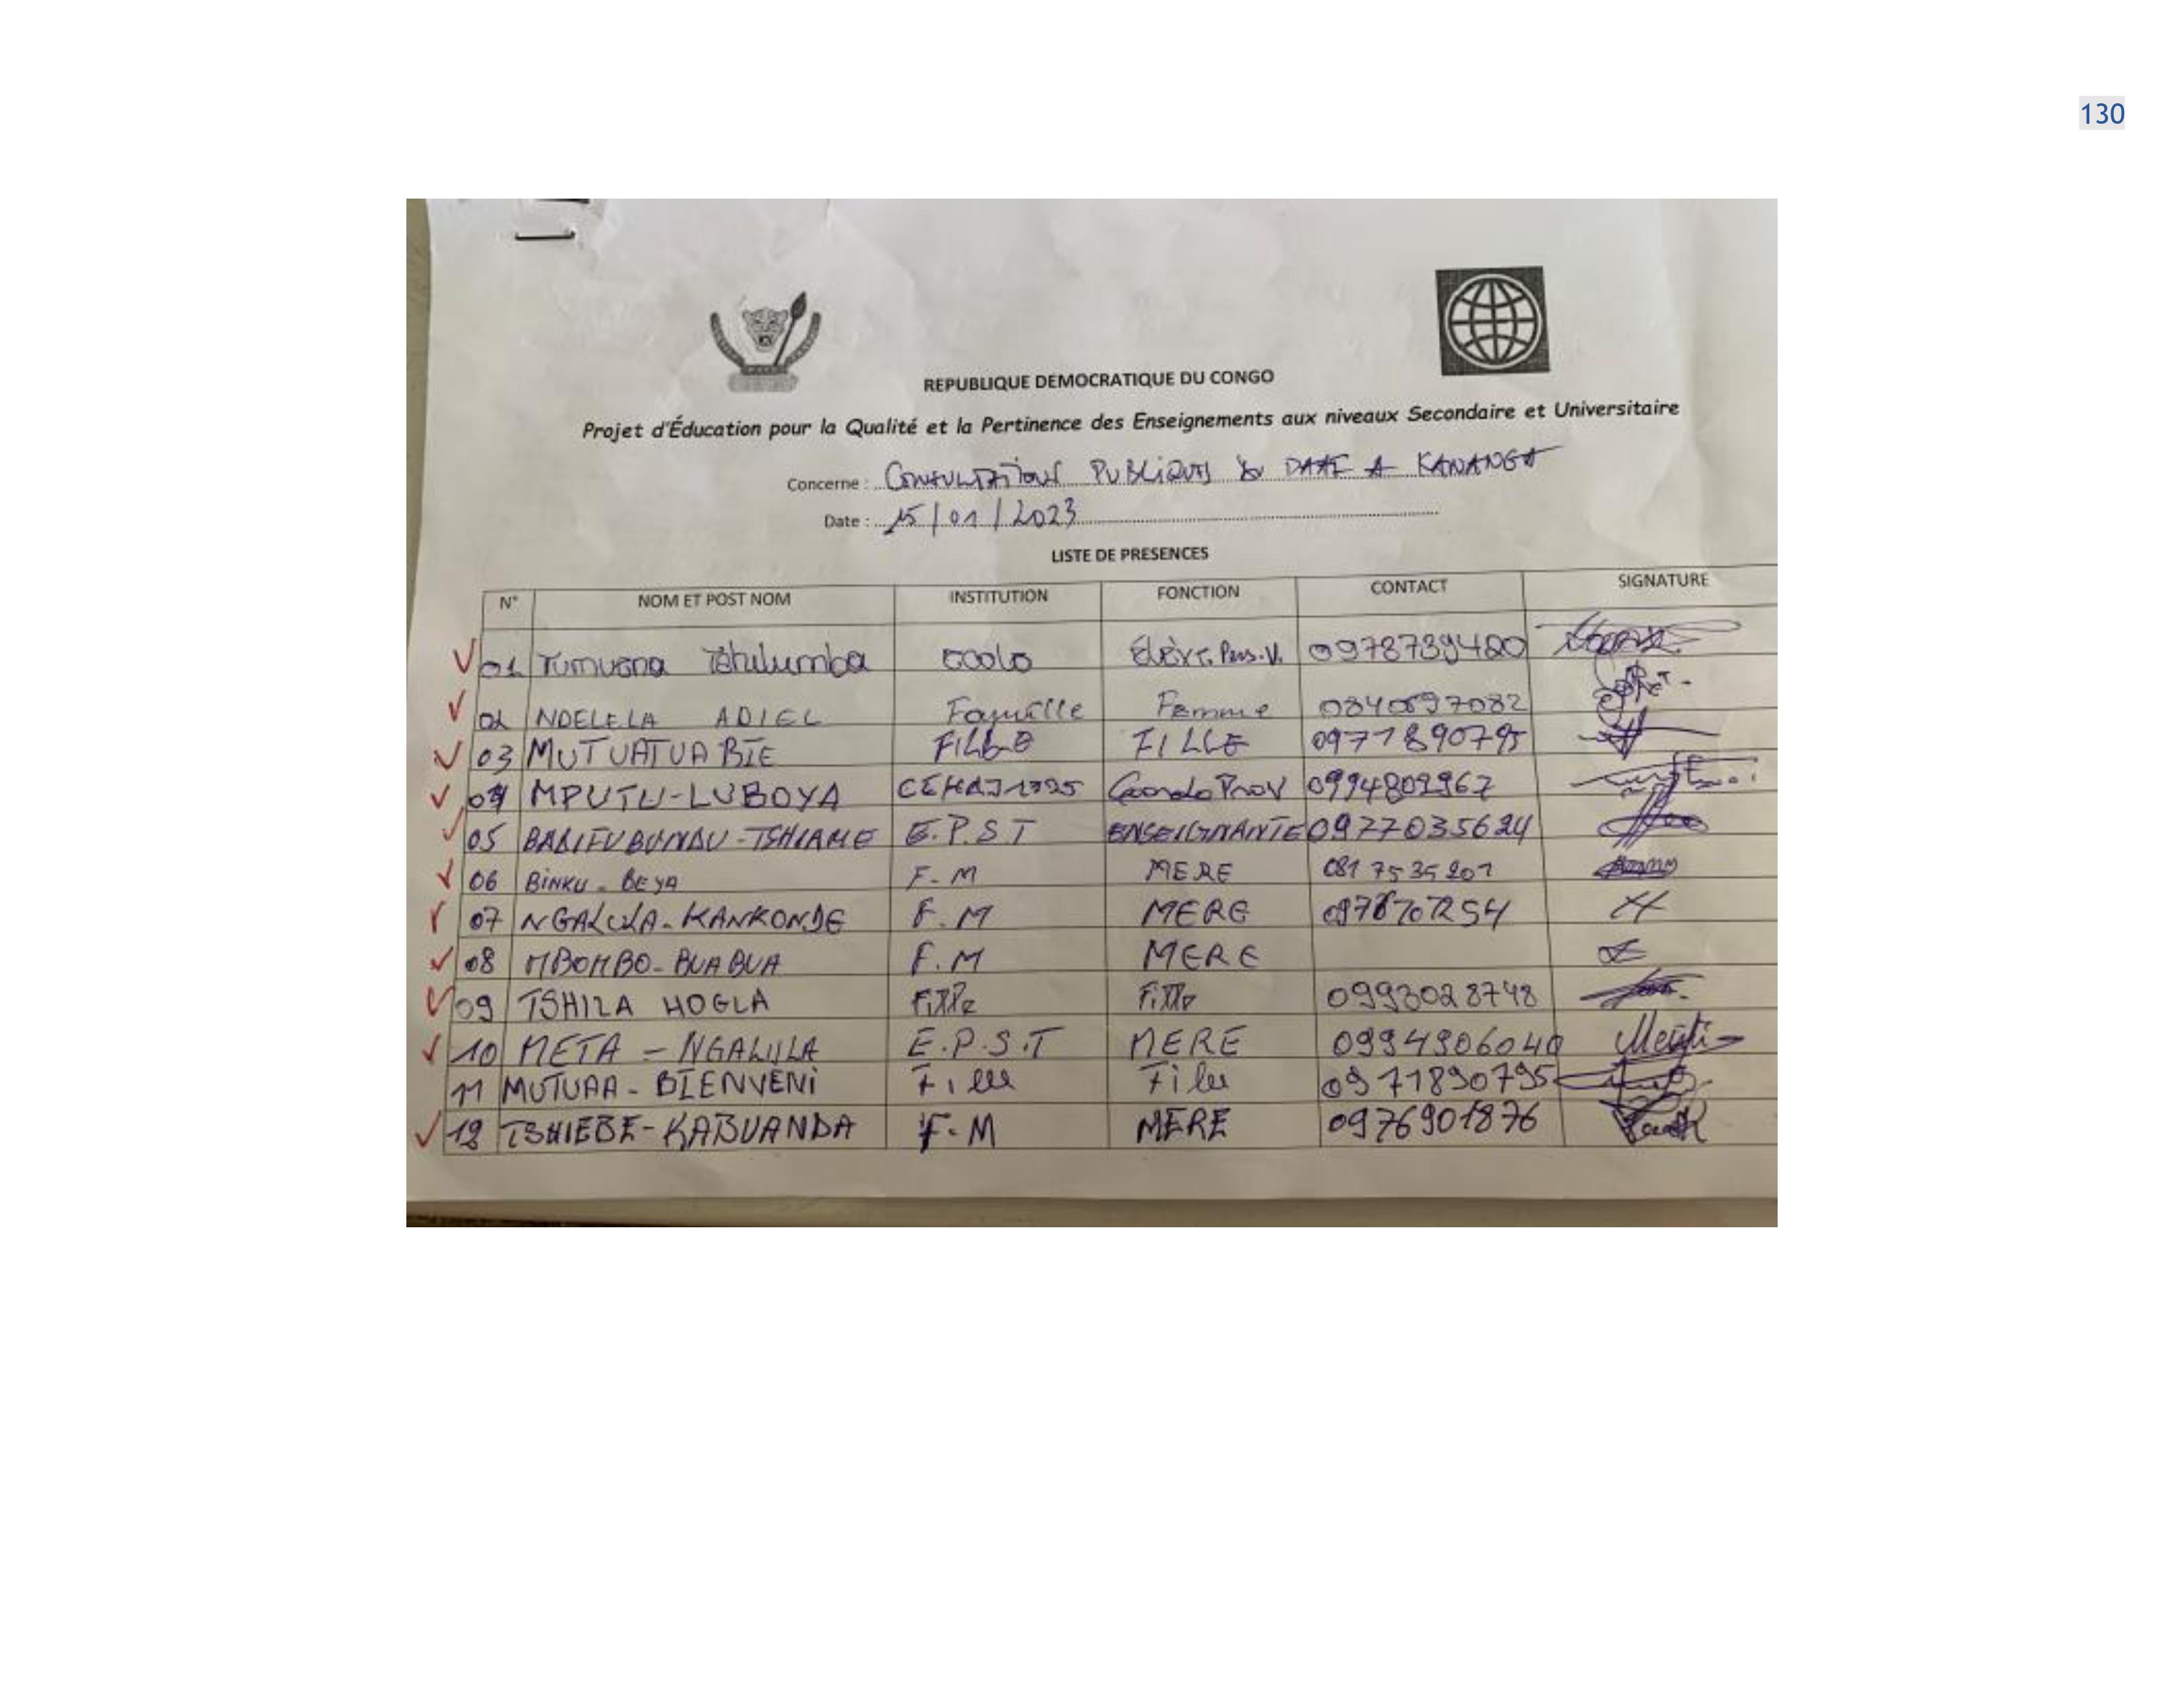 130
REPUBLIQUE DEMOCRATIQUE DU CONGO
Projet d'Éducation pour la Qualité et la Pertinence des Enseignements aux niveaux Secondaire et Universitaire
Concerne : PUBLIQUES A KANANGA
Date : 15/01/2023
LISTE DE PRESENCES
N° NOM ET POST NOM INSTITUTION FONCTION CONTACT SIGNATURE
01 Tumuena Tshulumba Elève 0978739420
02 NDELELA ADIEL Famille Femme
03 MUTUATUA BIE FILLE FILLE 0971890795
04 MPUTU-LUBOYA Prov
05 E.P.S.T ENSEIGNANTE 0977035624
06 BINKU - BEYA F-M MERE 0817535201
07 NGALULA-KANKONDE F.M MERE
08 MBOMBO-BUABUA F.M MERE
09 TSHILA HOGLA Fille Fille 0993028748
10 META - NGALULA E.P.S.T MERE 0994906040
11 MUTUAA - BIENVENI 0971890795
12 TSHIEBE-KABUANDA F-M MERE 0976901876